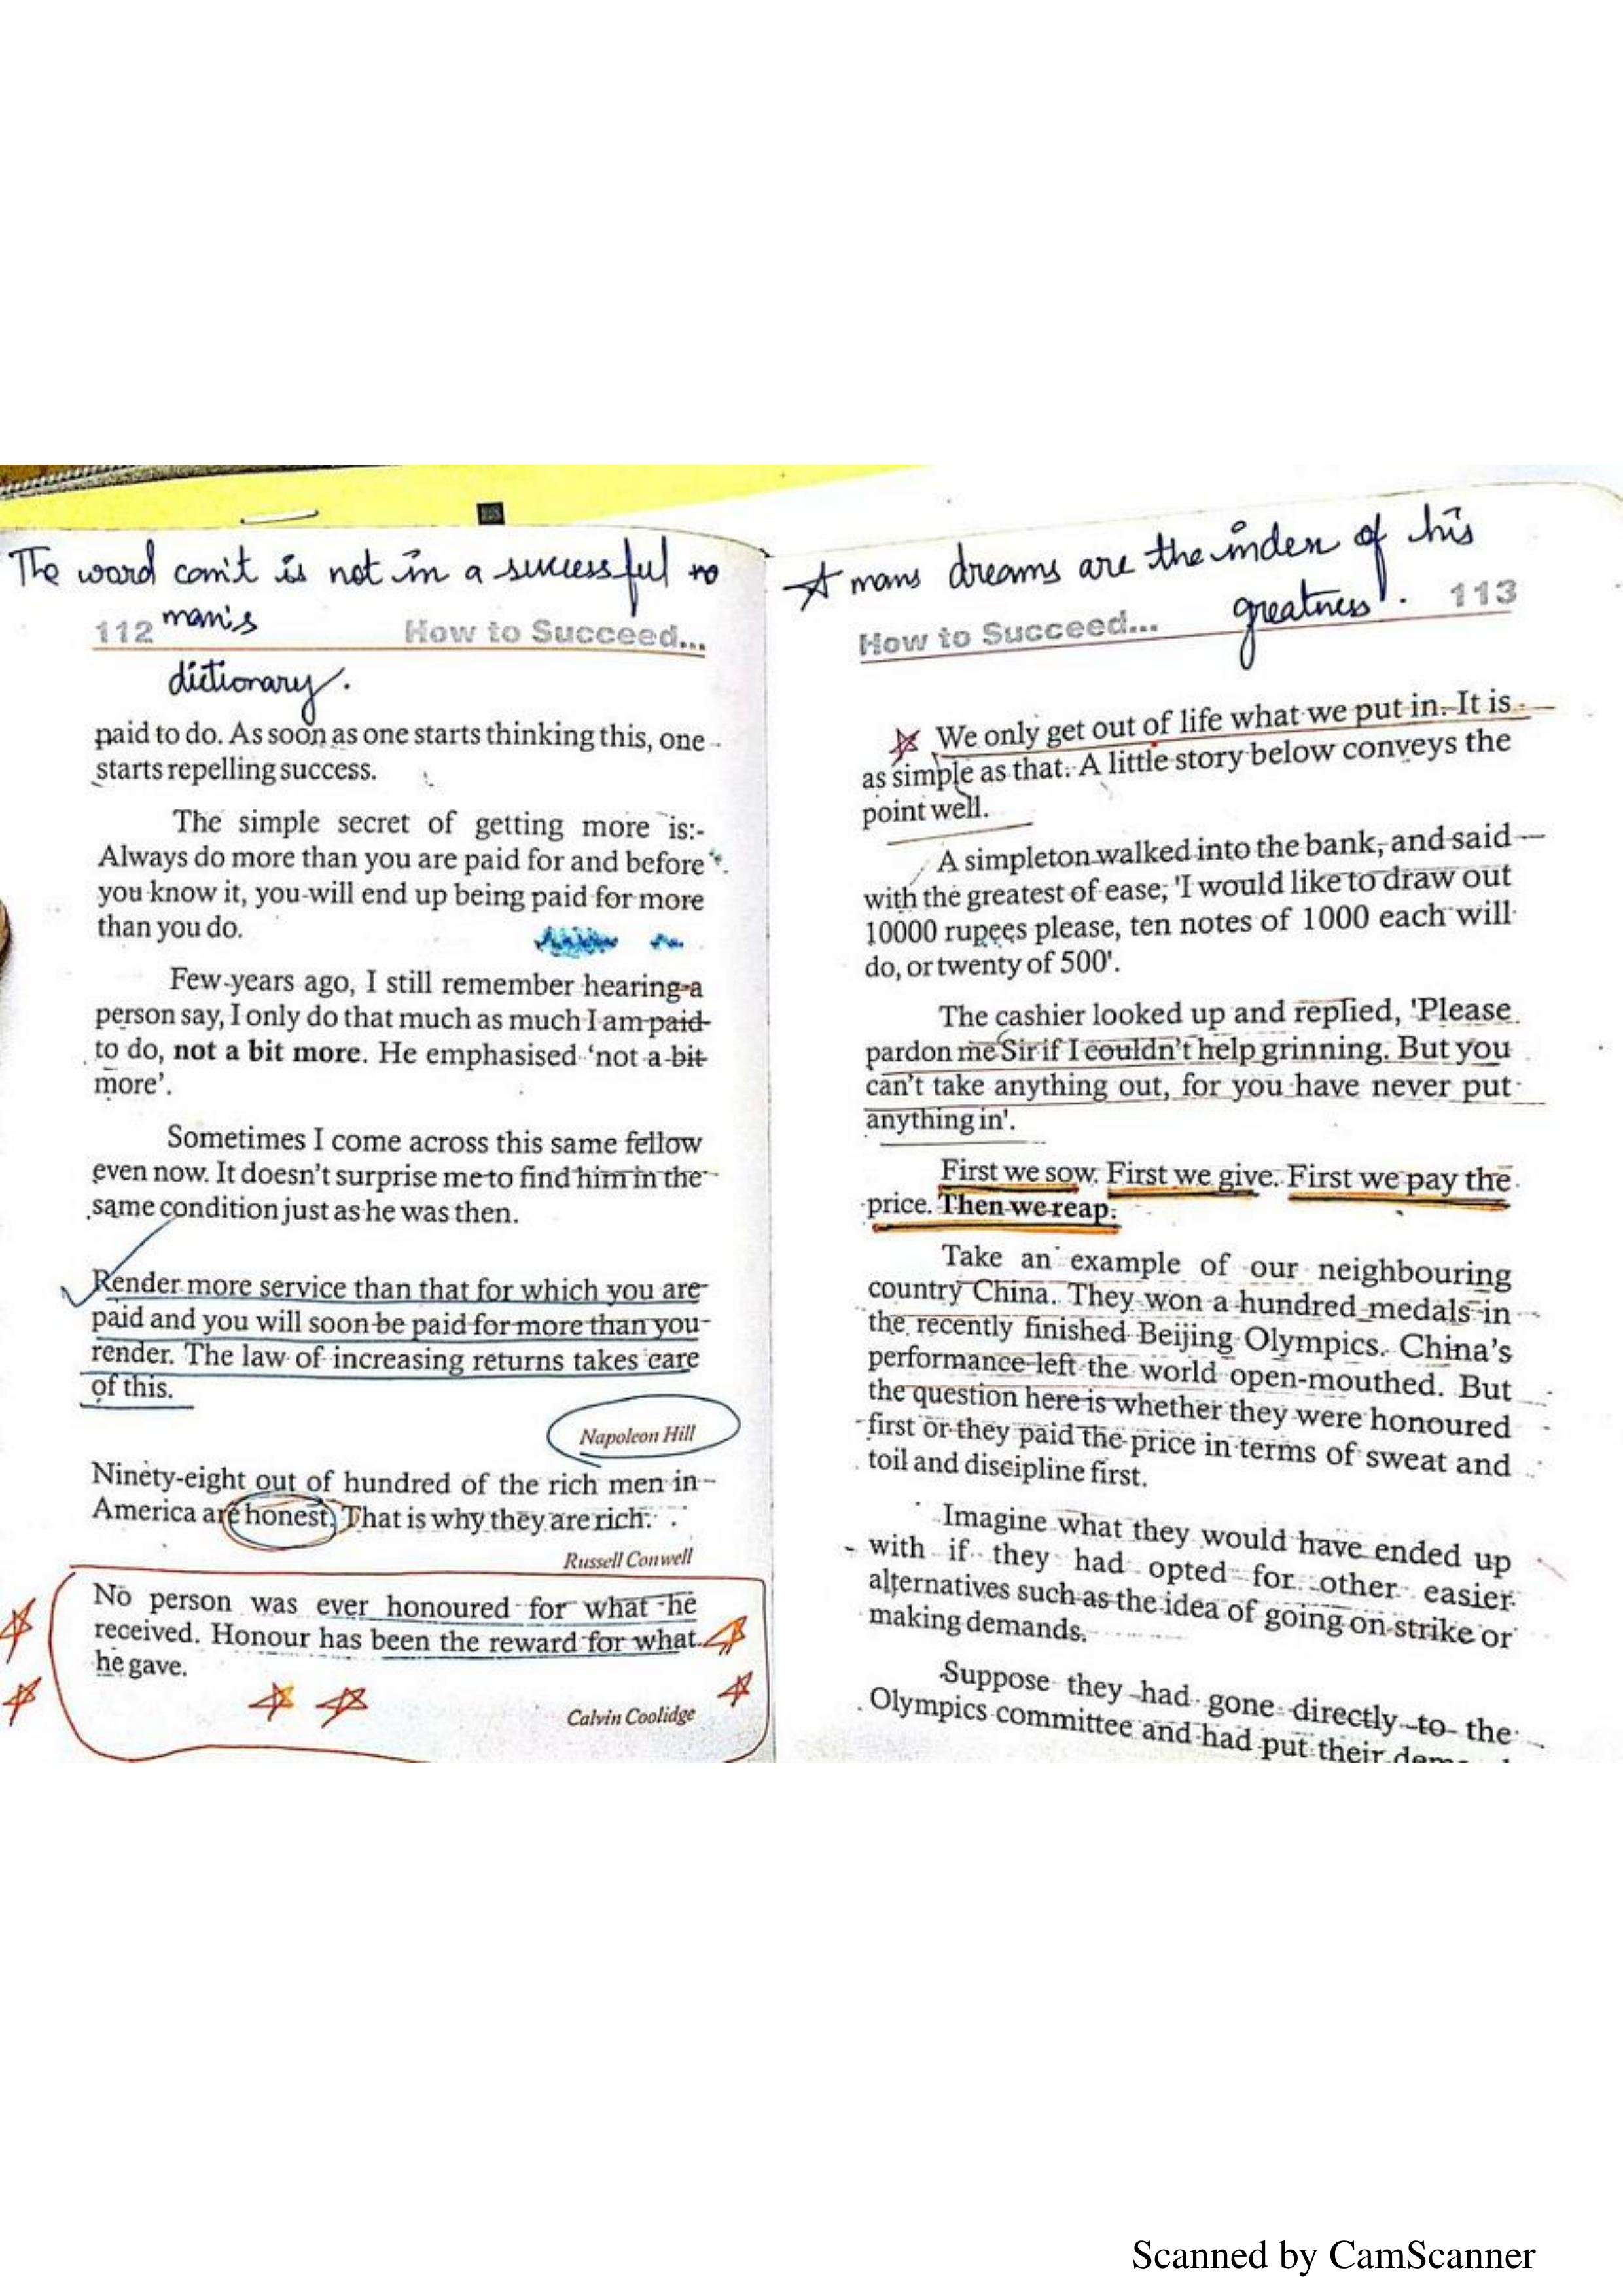 The word can't is not in a successful
man's
112 How to Succeed...
dictionary.
paid to do. As soon as one starts thinking this, one
starts repelling success.
The simple secret of getting more is:-
Always do more than you are paid for and before
you know it, you will end up being paid for more
than you do.
Few years ago, I still remember hearing a
person say, I only do that much as much I am paid
to do, not a bit more. He emphasised 'not a bit
more'.
Sometimes I come across this same fellow
even now. It doesn't surprise me to find him in the
same condition just as he was then.
Render more service than that for which you are
paid and you will soon be paid for more than you
render. The law of increasing returns takes care
of this.
Napoleon Hill
Ninety-eight out of hundred of the rich men in
America are honest. That is why they are rich.
Russell Conwell
No person was ever honoured for what he
received. Honour has been the reward for what
he gave.
Calvin Coolidge
A mans dreams are the index of his
greatness.
How to Succeed... 113
We only get out of life what we put in. It is
as simple as that. A little story below conveys the
point well.
A simpleton walked into the bank, and said
with the greatest of ease, 'I would like to draw out
10000 rupees please, ten notes of 1000 each will
do, or twenty of 500'.
The cashier looked up and replied, 'Please
pardon me Sir if I couldn't help grinning. But you
can't take anything out, for you have never put
anything in'.
First we sow. First we give. First we pay the
price. Then we reap.
Take an example of our neighbouring
country China. They won a hundred medals in
the recently finished Beijing Olympics. China's
performance left the world open-mouthed. But
the question here is whether they were honoured
first or they paid the price in terms of sweat and
toil and discipline first.
Imagine what they would have ended up
with if they had opted for other easier
alternatives such as the idea of going on strike or
making demands.
Suppose they had gone directly to the
Olympics committee and had put their
Scanned by CamScanner